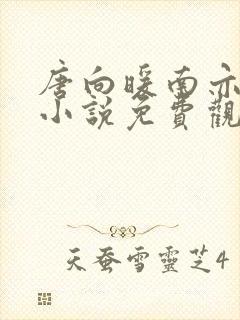 唐向暖南亦
小說免費觀
天蚕雪靈芝4